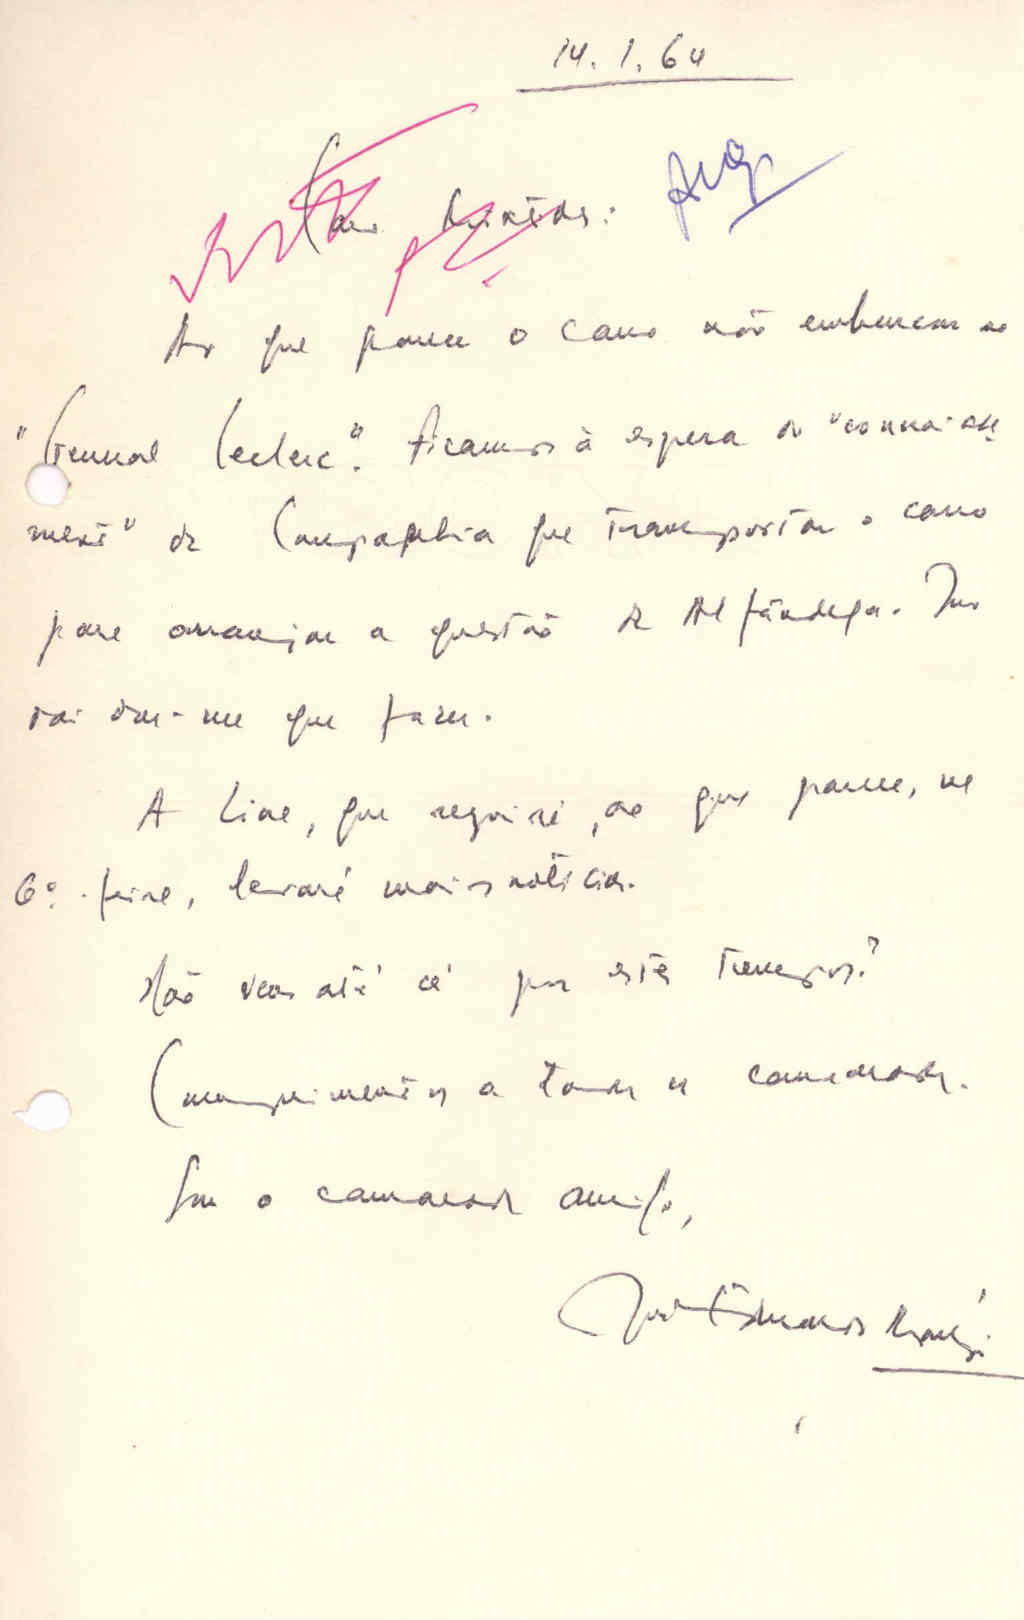 14.1.64
Caro Aristides:
Ao que parece o carro não embarcou no
"General Leclerc". Ficamos à espera do "connaisse-
ment" da Companhia que transportou o carro
para arranjar a questão da Alfândega. Isso
vai dar-me que fazer.
A Line, que seguirá, ao que parece, na
6ª. feira, levará mais notícias.
Não vens até cá por estes tempos?
Cumprimentos a todos os camaradas.
Sou o camarada amigo,
José Eduardo Araújo